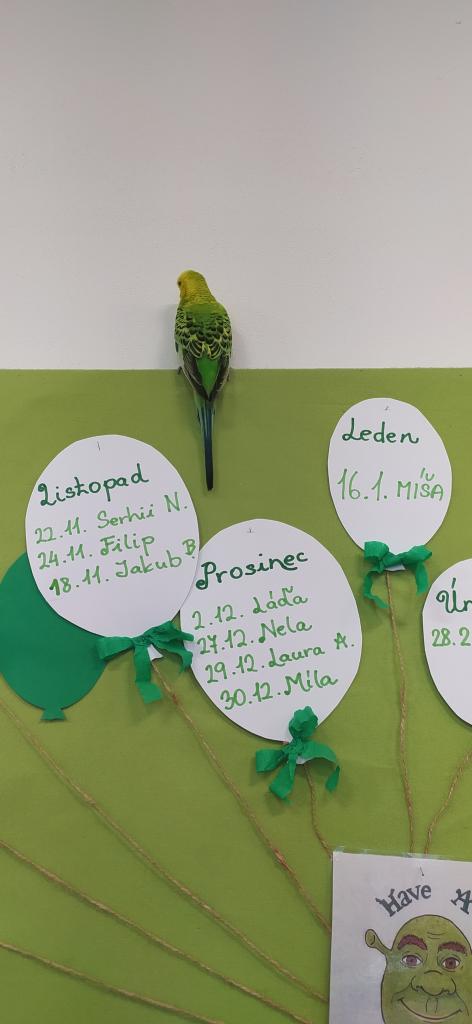 Listopad
22.11. Serhii N.
24.11. Filip
18.11. Jakub B
Prosinec
2.12. Láďa
27.12. Nela
29.12. Laura A.
30.12. Míla
Leden
16.1. MÍŠA
Úr
28.2
Have A